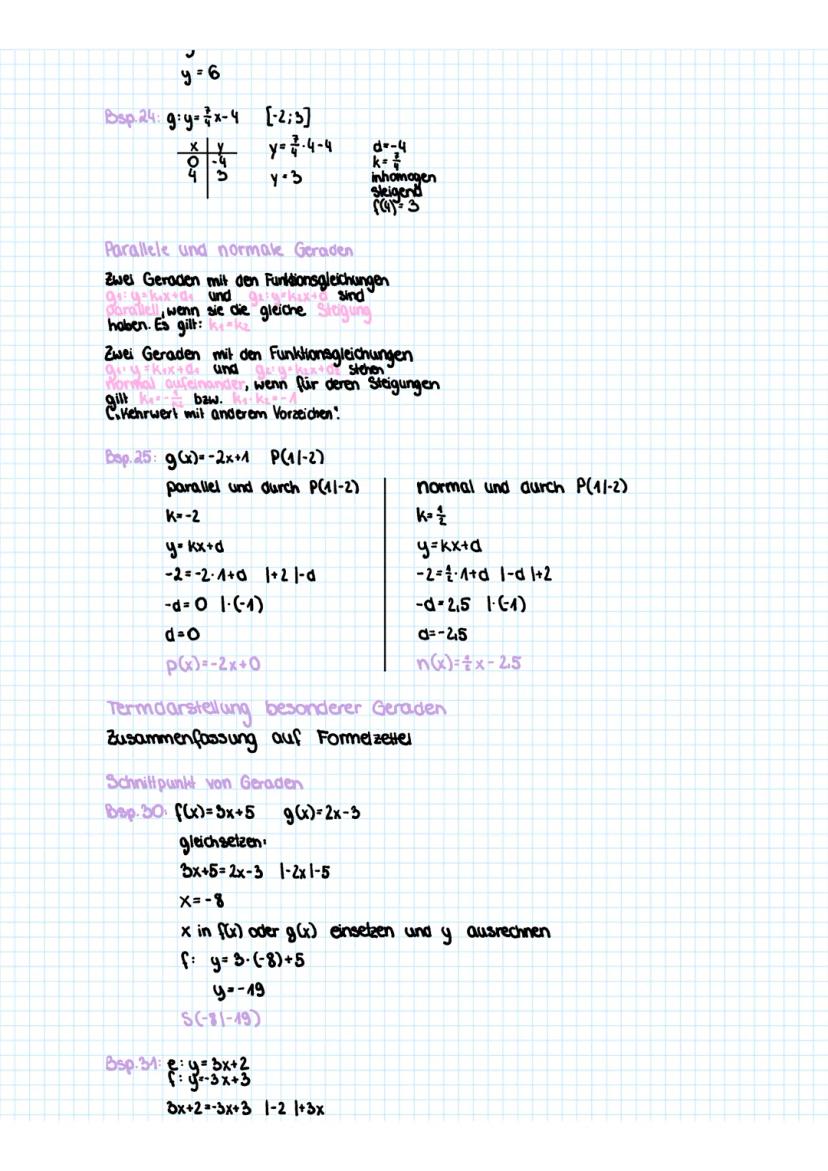 y = 6
Bsp. 24: g: y = 7/4 x - 4 [-2; 5]
x | y y = 7/4 · 4 - 4 d = -4
0 | -4 k = 7/4
4 | 3 y = 3 inhomogen
steigend
f(4) = 3
Parallele und normale Geraden
Zwei Geraden mit den Funktionsgleichungen
g₁: y = k₁x + d₁ und g₂: y = k₂x + d sind
parallel, wenn sie die gleiche Steigung
haben. Es gilt: k₁ = k₂
Zwei Geraden mit den Funktionsgleichungen
g₁: y = k₁x + d₁ und g₂: y = k₂x + d₂ stehen
normal aufeinander, wenn für deren Steigungen
gilt k₁ = -1/k₂ bzw. k₁ · k₂ = -1
(„Kehrwert mit anderem Vorzeichen".
Bsp. 25: g(x) = -2x + 1 P(1|-2)
parallel und durch P(1|-2)
k = -2
y = kx + d
-2 = -2 · 1 + d |+2 |-d
-d = 0 |·(-1)
d = 0
p(x) = -2x + 0
normal und durch P(1|-2)
k = 1/2
y = kx + d
-2 = 1/2 · 1 + d |-d |+2
-d = 2,5 |·(-1)
d = -2,5
n(x) = 1/2 x - 2,5
Termdarstellung besonderer Geraden
Zusammenfassung auf Formelzettel
Schnittpunkt von Geraden
Bsp. 30: f(x) = 3x + 5 g(x) = 2x - 3
gleichsetzen:
3x + 5 = 2x - 3 |-2x |-5
x = -8
x in f(x) oder g(x) einsetzen und y ausrechnen
f: y = 3 · (-8) + 5
y = -19
S(-8|-19)
Bsp. 31: e: y = 3x + 2
f: y = -3x + 3
3x + 2 = -3x + 3 |-2 |+3x